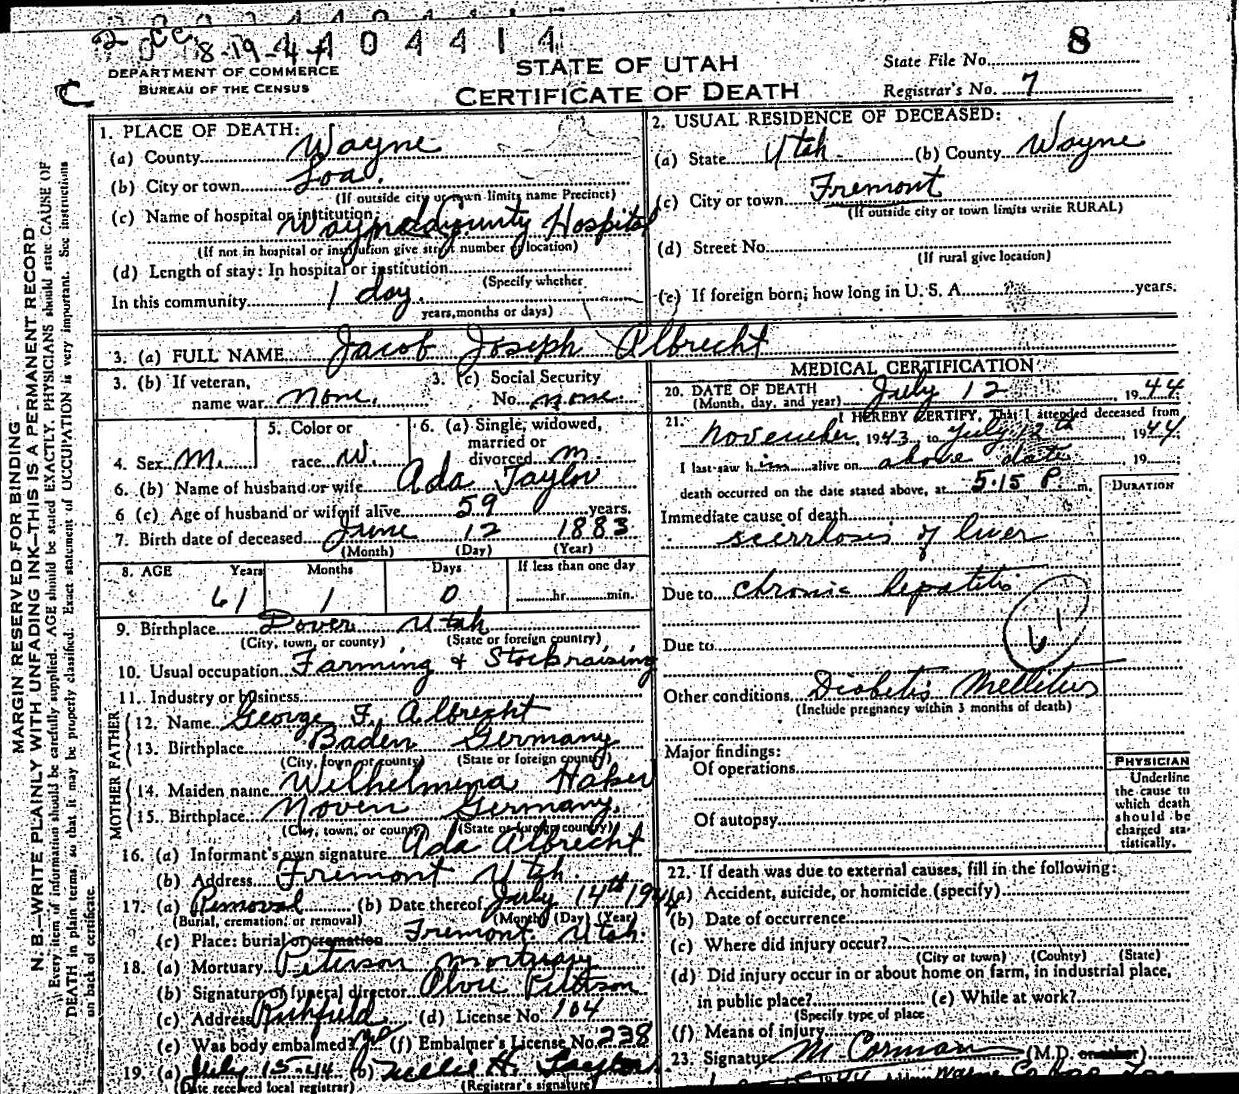 2 cc
8-19-44
4404414
8
DEPARTMENT OF COMMERCE
BUREAU OF THE CENSUS
C
STATE OF UTAH
CERTIFICATE OF DEATH
State File No.
Registrar's No. 7
MARGIN RESERVED FOR BINDING
N. B.—WRITE PLAINLY WITH UNFADING INK—THIS IS A PERMANENT RECORD
Every item of information should be carefully supplied. AGE should be stated EXACTLY. PHYSICIANS should state CAUSE OF
DEATH in plain terms, so that it may be properly classified. Exact statement of OCCUPATION is very important. See instructions
on back of certificate.
1. PLACE OF DEATH:
(a) County Wayne
(b) City or town Loa.
(If outside city or town limits name Precinct)
(c) Name of hospital or institution:
Wayne County Hospital
(If not in hospital or institution give street number or location)
(d) Length of stay: In hospital or institution
(Specify whether
In this community 1 day.
years, months or days)
2. USUAL RESIDENCE OF DECEASED:
(a) State Utah (b) County Wayne
(c) City or town Fremont
(If outside city or town limits write RURAL)
(d) Street No.
(If rural give location)
(e) If foreign born, how long in U. S. A. years.
3. (a) FULL NAME Jacob Joseph Albrecht
3. (b) If veteran, name war none.
3. (c) Social Security No. none.
4. Sex M.
5. Color or race W.
6. (a) Single, widowed, married or divorced m.
6. (b) Name of husband or wife Ada Taylor
6 (c) Age of husband or wife if alive 59 years.
7. Birth date of deceased June 12 1883
(Month) (Day) (Year)
8. AGE Years Months Days If less than one day
61 1 0 hr. min.
9. Birthplace Dover Utah
(City, town, or county) (State or foreign country)
10. Usual occupation Farming & Stockraising
11. Industry or business
FATHER
12. Name George F. Albrecht
13. Birthplace Baden Germany
(City, town or county) (State or foreign country)
MOTHER
14. Maiden name Wilhelmina Haker
15. Birthplace Noven Germany.
(City, town, or county) (State or foreign country)
16. (a) Informant's own signature Ada Albrecht
(b) Address Fremont Utah
17. (a) Removal (b) Date thereof July 14th 1944
(Burial, cremation, or removal) (Month) (Day) (Year)
(c) Place: burial or cremation Fremont Utah.
18. (a) Mortuary Peterson Mortuary
(b) Signature of funeral director Peterson
(c) Address Richfield. (d) License No. 104
(e) Was body embalmed? (f) Embalmer's License No. 238
19. (a) July 15-44 (b) Nellie H.
(Date received local registrar) (Registrar's signature)
MEDICAL CERTIFICATION
20. DATE OF DEATH July 12, 1944
(Month, day, and year)
21. I HEREBY CERTIFY, That I attended deceased from
November, 1943, to July 12th, 1944
I last saw him alive on above date, 19
death occurred on the date stated above, at 5:15 P. m.
DURATION
Immediate cause of death
scerrhosis of liver
Due to chronic hepatitis
Due to
61
Other conditions Diabetis Mellitus
(Include pregnancy within 3 months of death)
Major findings:
Of operations
Of autopsy
PHYSICIAN
Underline
the cause to
which death
should be
charged sta-
tistically.
22. If death was due to external causes, fill in the following:
(a) Accident, suicide, or homicide (specify)
(b) Date of occurrence
(c) Where did injury occur?
(City or town) (County) (State)
(d) Did injury occur in or about home on farm, in industrial place,
in public place? (e) While at work?
(Specify type of place
(f) Means of injury
23. Signature M Corman (M.D. or other)